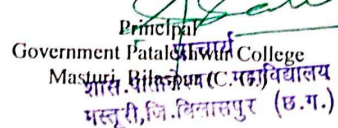 Principal
प्राचार्य
Government Pataleshwar College
Masturi, Bilaspur (C.G.)
शास. पातालेश्वर महाविद्यालय
मस्तूरी, जि. बिलासपुर (छ.ग.)